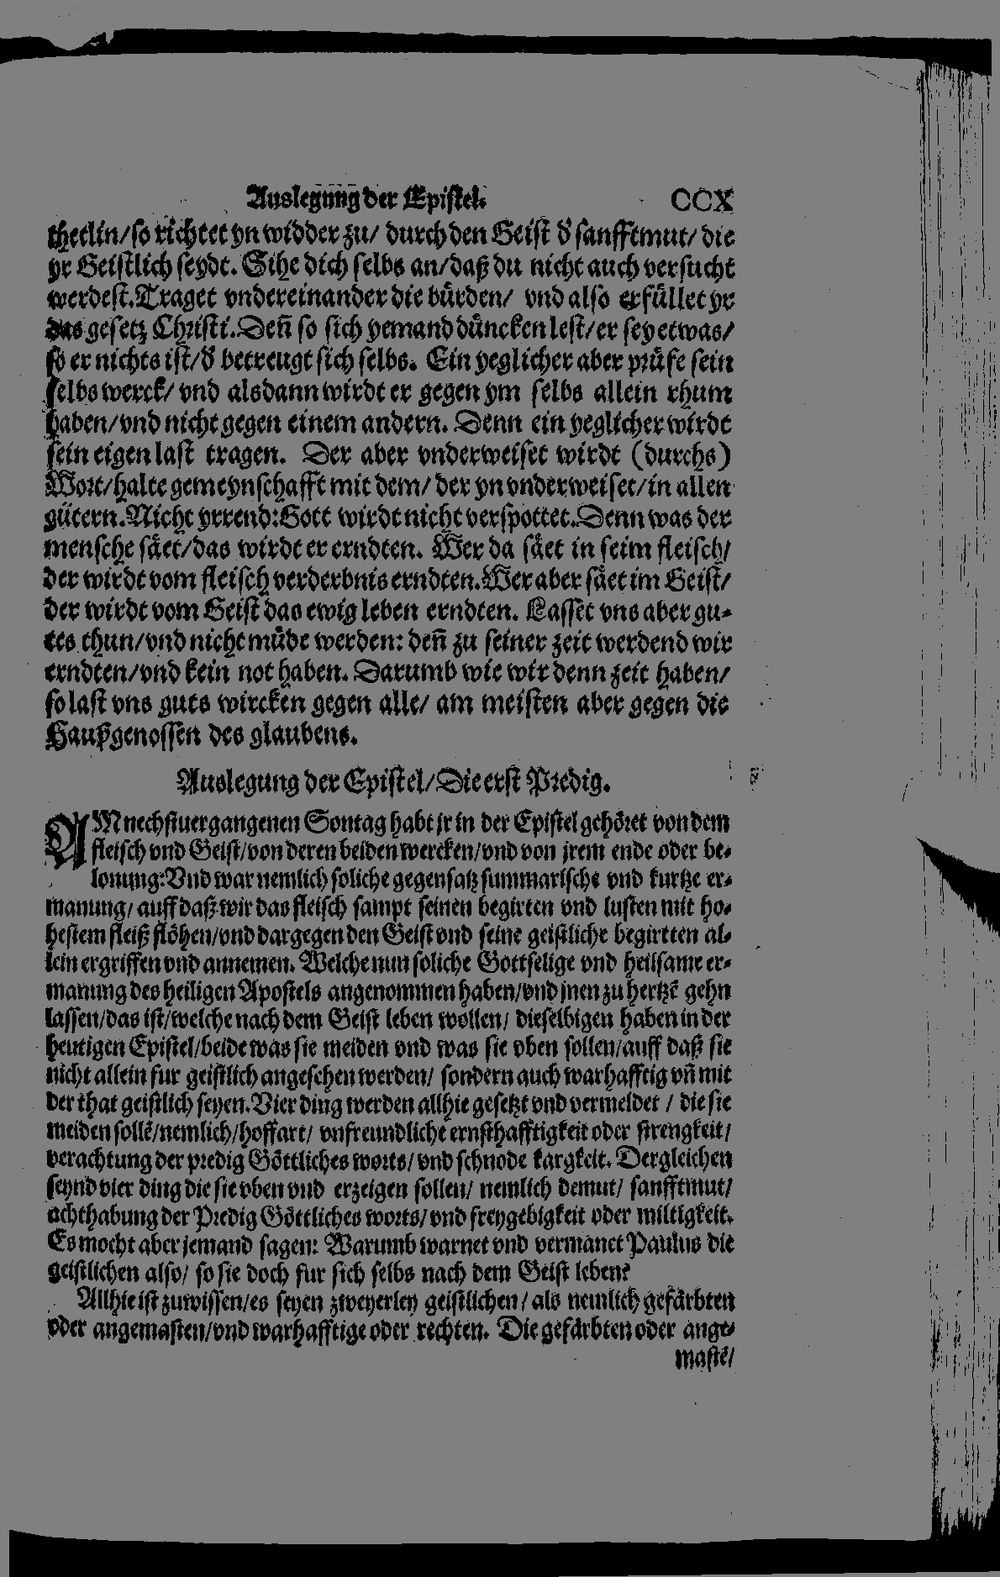 Auslegung der Epistel. CCX
thetlin/so richtet yn widder zu/ durch den Geist d̕ sanfftmut/ die
yr Geistlich seydt. Sihe dich selbs an/daß du nicht auch versucht
werdest. Traget vndereinander die bürden/ vnd also erfüllet yr
das gesetz Christi. Deñ so sich yemand düncken lest/er sey etwas/
so er nichts ist/d̕ betreugt sich selbs. Ein yeglicher aber prüfe sein
selbs werck/ vnd alsdann wirdt er gegen ym selbs allein rhum
haben/vnd nicht gegen einem andern. Denn ein yeglicher wirdt
sein eigen last tragen. Der aber vnderweiset wirdt (durchs)
Wort/halte gemeynschafft mit dem/ der yn vnderweiset/in allen
gütern. Nicht yrrend: Gott wirdt nicht verspottet. Denn was der
mensche säet/das wirdt er erndten. Wer da säet in seim fleisch/
der wirdt vom fleisch verderbnis erndten. Wer aber säet im Geist/
der wirdt vom Geist das ewig leben erndten. Lasset vns aber gu-
tes thun/vnd nicht müde werden: deñ zu seiner zeit werdend wir
erndten/vnd kein not haben. Darumb wie wir denn zeit haben/
so last vns guts wircken gegen alle/ am meisten aber gegen die
Haußgenossen des glaubens.
Auslegung der Epistel/Die erst Predig.
AM nechstuergangenen Sontag habt jr in der Epistel gehöret von dem
fleisch vnd Geist/von deren beiden wercken/vnd von jrem ende oder be-
lonung: Vnd war nemlich soliche gegensatz summarische vnd kurtze er-
manung/ auff daß wir das fleisch sampt seinen begirten vnd lusten mit ho-
hestem fleiß flöhen/vnd dargegen den Geist vnd seine geistliche begirtten al-
lein ergriffen vnd annemen. Welche nun soliche Gottselige vnd heilsame er-
manung des heiligen Apostels angenommen haben/vnd jnen zu hertzē gehn
lassen/das ist/welche nach dem Geist leben wollen/ dieselbigen haben in der
heutigen Epistel/beide was sie meiden vnd was sie vben sollen/auff daß sie
nicht allein fur geistlich angesehen werden/ sondern auch warhafftig vñ mit
der that geistlich seyen. Vier ding werden allhie gesetzt vnd vermeldet / die sie
meiden sollē/nemlich/hoffart/ vnfreundliche ernsthafftigkeit oder strengkeit/
verachtung der predig Göttliches worts/ vnd schnode kargkeit. Dergleichen
seynd vier ding die sie vben vnd erzeigen sollen/ nemlich demut/ sanfftmut/
achthabung der Predig Göttliches worts/ vnd freygebigkeit oder miltigkeit.
Es mocht aber jemand sagen: Warumb warnet vnd vermanet Paulus die
geistlichen also/ so sie doch fur sich selbs nach dem Geist leben?
Allhie ist zuwissen/es seyen zweyerley geistlichen/ als nemlich gefärbten
oder angemasten/vnd warhafftige oder rechten. Die gefärbten oder ange-
mastē/